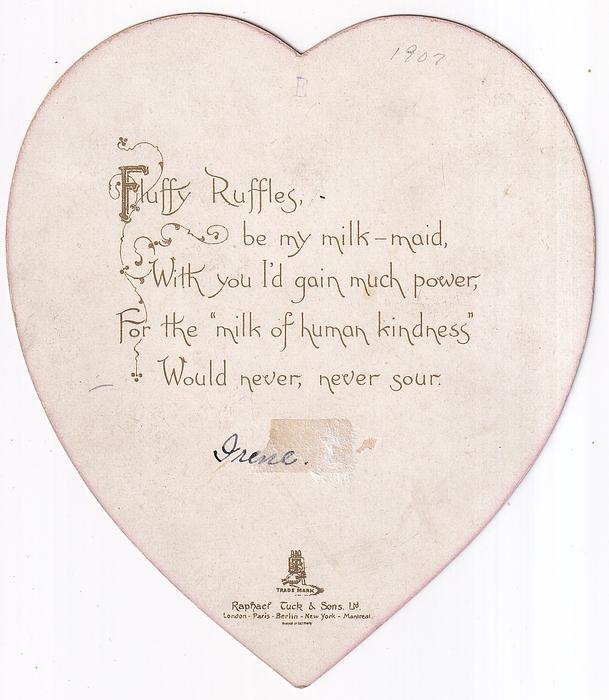 1907
E
Fluffy Ruffles,
be my milk-maid,
With you I'd gain much power,
For the "milk of human kindness"
Would never, never sour.
Irene.
TRADE MARK
Raphael Tuck & Sons. Ltd.
London - Paris - Berlin - New York - Montreal.